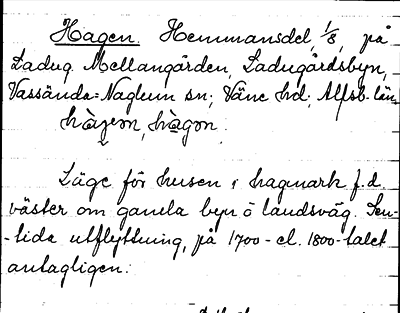 Hagen. Hemmansdel, 1/8, på
Ladug. Mellangården, Ladugårdsbyn,
Vassända-Naglum sn; Väne hd; Älfsb. län.
hàgen, hàgǝn.
Läge för husen i hagmark f. d.
väster om gamla byn o landsväg. Sen-
-tida utflyttning, på 1700- el. 1800-talet
antagligen.